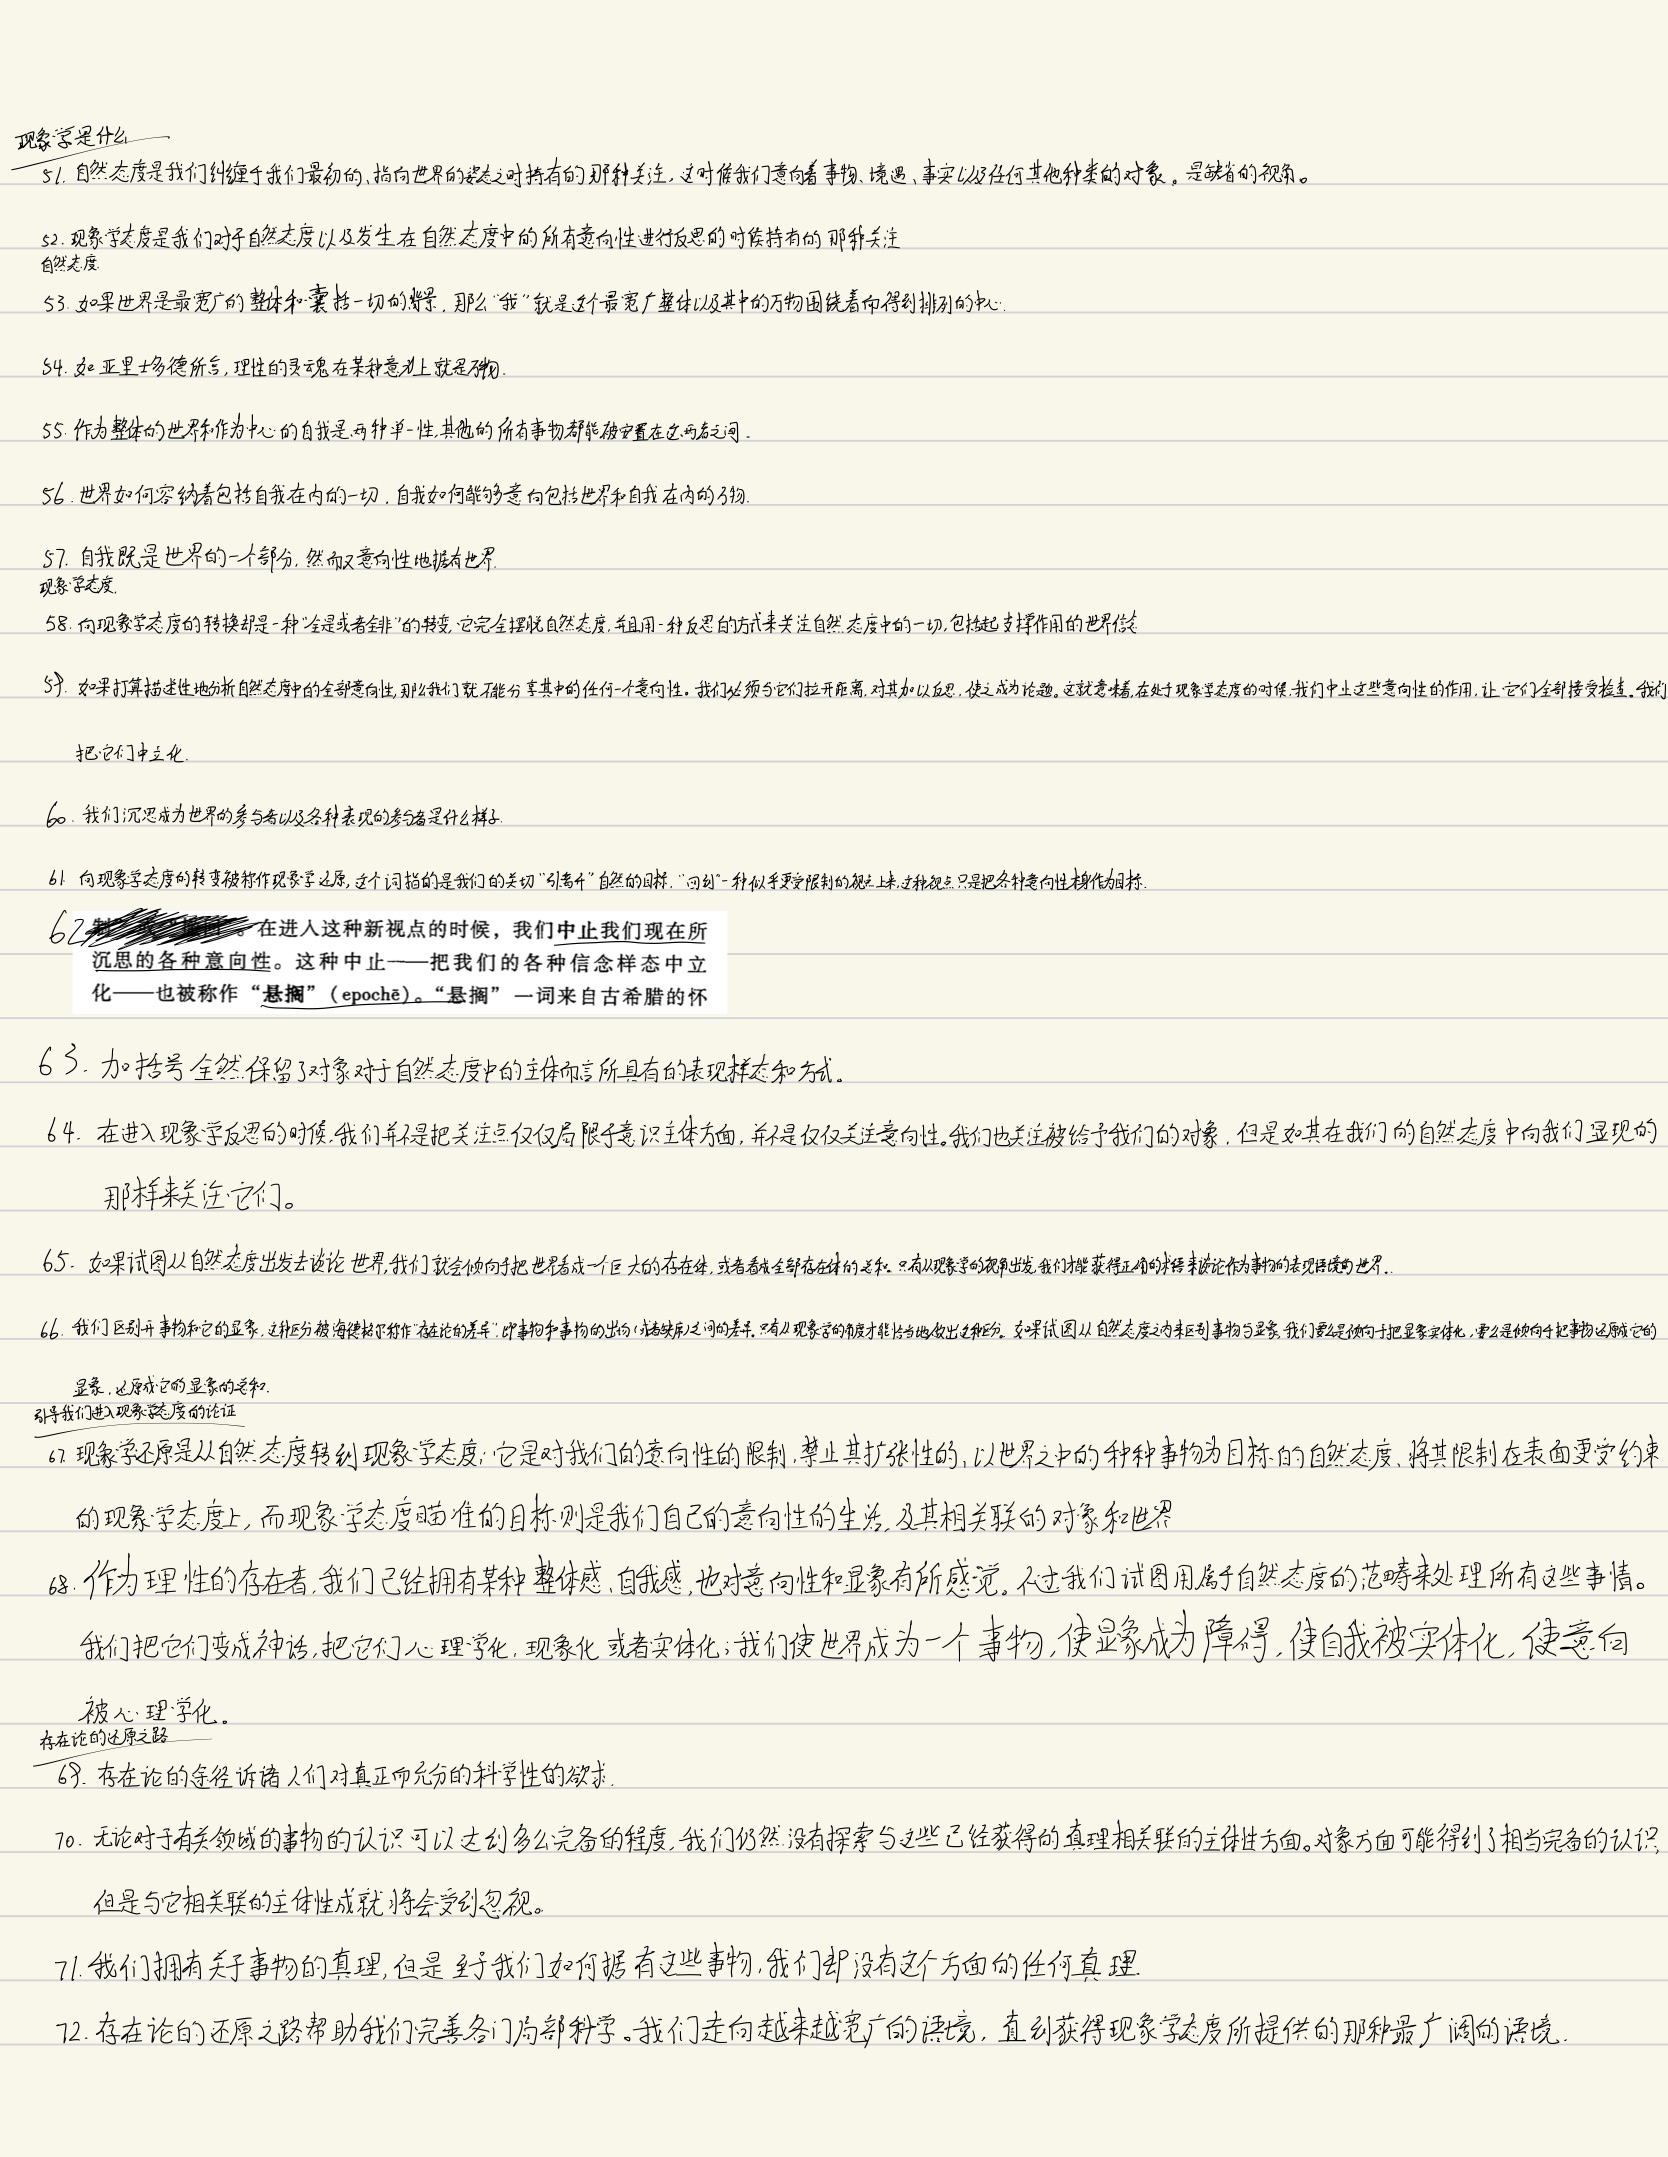 现象学是什么
51. 自然态度是我们纠缠于我们最初的、指向世界的姿态之时持有的那种关注，这时候我们意向着事物、境遇、事实以及任何其他种类的对象。是缺省的视角。
52. 现象学态度是我们对于自然态度以及发生在自然态度中的所有意向性进行反思的时候持有的那种关注
自然态度.
53. 如果世界是最宽广的整体和囊括一切的背景，那么“我”就是这个最宽广整体以及其中的万物围绕着而得到排列的中心.
54. 如亚里士多德所言，理性的灵魂在某种意义上就是万物.
55. 作为整体的世界和作为中心的自我是两种单一性，其他的所有事物都能被安置在这两者之间.
56. 世界如何容纳着包括自我在内的一切，自我如何能够意向包括世界和自我在内的万物.
57. 自我既是世界的一个部分，然而又意向性地据有世界.
现象学态度.
58. 向现象学态度的转换却是一种“全是或者全非”的转变，它完全摆脱自然态度，并且用一种反思的方式来关注自然态度中的一切，包括起支撑作用的世界信念
59. 如果打算描述性地分析自然态度中的全部意向性，那么我们就不能分享其中的任何一个意向性。我们必须与它们拉开距离，对其加以反思，使之成为论题。这就意味着，在处于现象学态度的时候，我们中止这些意向性的作用，让它们全部接受检查。我们
把它们中立化.
60. 我们沉思成为世界的参与者以及各种表现的参与者是什么样子.
61. 向现象学态度的转变被称作现象学还原，这个词指的是我们的关切“引离开”自然的目标，“回到”一种似乎更受限制的视点上来，这种视点只是把各种意向性本身作为目标.
62 。在进入这种新视点的时候，我们中止我们现在所
沉思的各种意向性。这种中止——把我们的各种信念样态中立
化——也被称作“悬搁”（epochē）。“悬搁”一词来自古希腊的怀
63. 加括号全然保留了对象对于自然态度中的主体而言所具有的表现样态和方式。
64. 在进入现象学反思的时候，我们并不是把关注点仅仅局限于意识主体方面，并不是仅仅关注意向性。我们也关注被给予我们的对象，但是如其在我们的自然态度中向我们显现的
那样来关注它们。
65. 如果试图从自然态度出发去谈论世界，我们就会倾向于把世界看成一个巨大的存在体，或者看成全部存在体的总和。只有从现象学的视角出发，我们才能获得正确的术语来谈论作为事物的表现语境的世界.
66. 我们区别开事物和它的显象，这种区分被海德格尔称作“存在论的差异”，即事物和事物的出场（或者缺席）之间的差异。只有从现象学的角度才能恰当地做出这种区分。如果试图从自然态度之内来区别事物与显象，我们要么是倾向于把显象实体化，要么是倾向于把事物还原成它的
显象，还原成它的显象的总和.
引导我们进入现象学态度的论证
67. 现象学还原是从自然态度转到现象学态度；它是对我们的意向性的限制，禁止其扩张性的，以世界之中的种种事物为目标的自然态度，将其限制在表面更受约束
的现象学态度上，而现象学态度瞄准的目标则是我们自己的意向性的生活，及其相关联的对象和世界
68. 作为理性的存在者，我们已经拥有某种整体感、自我感，也对意向性和显象有所感觉。不过我们试图用属于自然态度的范畴来处理所有这些事情。
我们把它们变成神话，把它们心理学化，现象化或者实体化；我们使世界成为一个事物，使显象成为障碍，使自我被实体化，使意向
被心理学化。
存在论的还原之路
69. 存在论的途径诉诸人们对真正而充分的科学性的欲求.
70. 无论对于有关领域的事物的认识可以达到多么完备的程度，我们仍然没有探索与这些已经获得的真理相关联的主体性方面。对象方面可能得到了相当完备的认识，
但是与它相关联的主体性成就将会受到忽视。
71. 我们拥有关于事物的真理，但是至于我们如何据有这些事物，我们却没有这个方面的任何真理.
72. 存在论的还原之路帮助我们完善各门局部科学。我们走向越来越宽广的语境，直到获得现象学态度所提供的那种最广阔的语境.